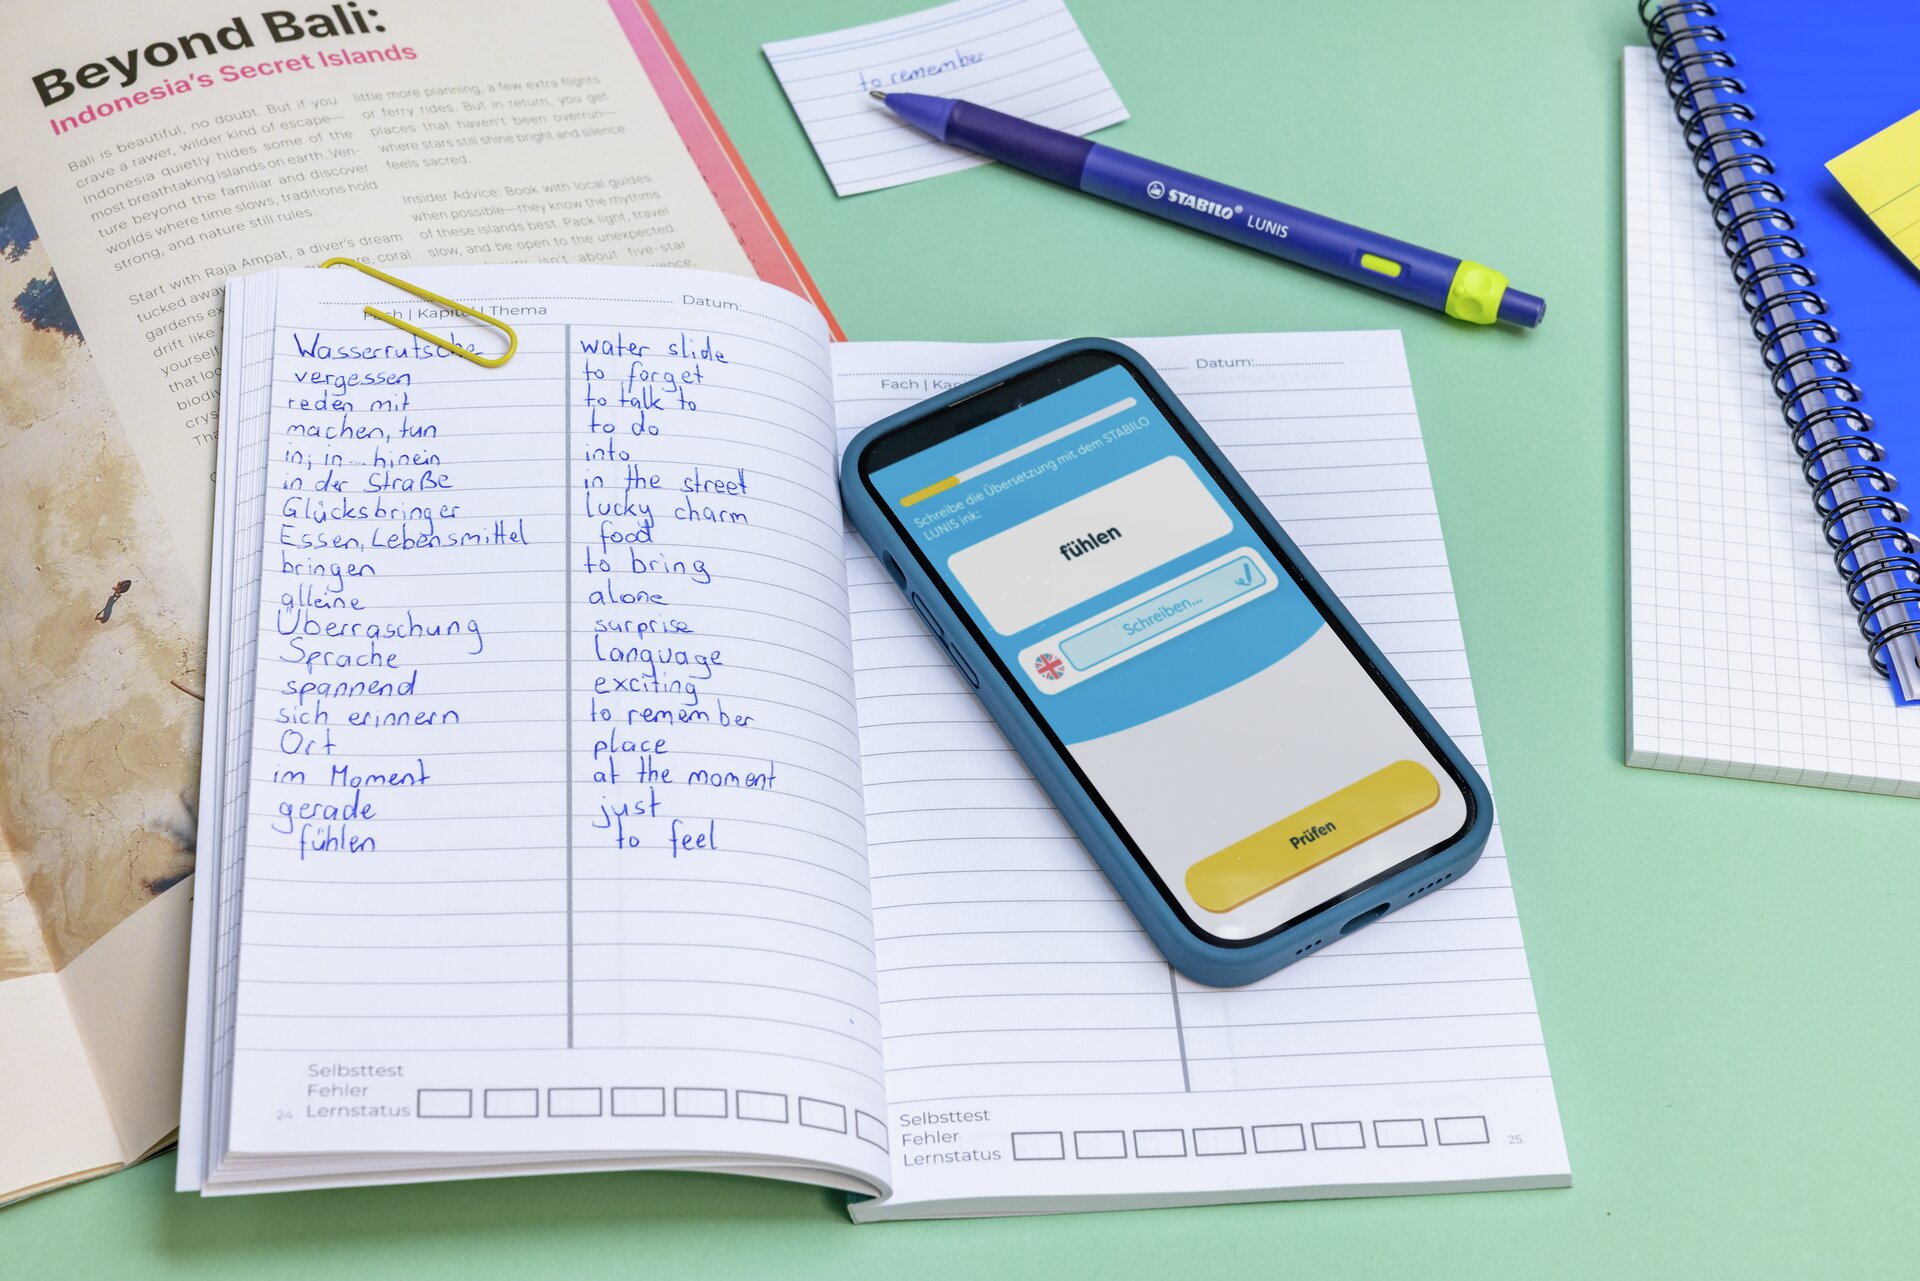 Beyond Bali:
Indonesia's Secret Islands
Bali is beautiful, no doubt. But if you
crave a rawer, wilder kind of escape—
Indonesia quietly hides some of the
most breathtaking islands on earth. Ven-
ture beyond the familiar and discover
worlds where time slows, traditions hold
strong, and nature still rules.
Start with Raja Ampat, a diver's dream
tucked away
gardens
drift like
yourself
that
cry
little more planning, a few extra flights
or ferry rides. But in return, you get
places that haven't been overrun—
where stars still shine bright and silence
feels sacred.
Insider Advice: Book with local guides
when possible—they know the rhythms
of these islands best. Pack light, travel
slow, and be open to the unexpected.
isn't about five-star
to remember
STABILO® LUNIS
Fach | Kapitel | Thema Datum:
Wasserrutsche water slide
vergessen to forget
reden mit to talk to
machen, tun to do
in; in...hinein into
in der Straße in the street
Glücksbringer lucky charm
Essen, Lebensmittel food
bringen to bring
alleine alone
Überraschung surprise
Sprache language
spannend exciting
sich erinnern to remember
Ort place
im Moment at the moment
gerade just
fühlen to feel
Selbsttest
Fehler
24 Lernstatus
Fach | Kap Datum:
Schreibe die Übersetzung mit dem STABILO
LUNIS ink:
fühlen
Schreiben...
Prüfen
Selbsttest
Fehler
Lernstatus 25